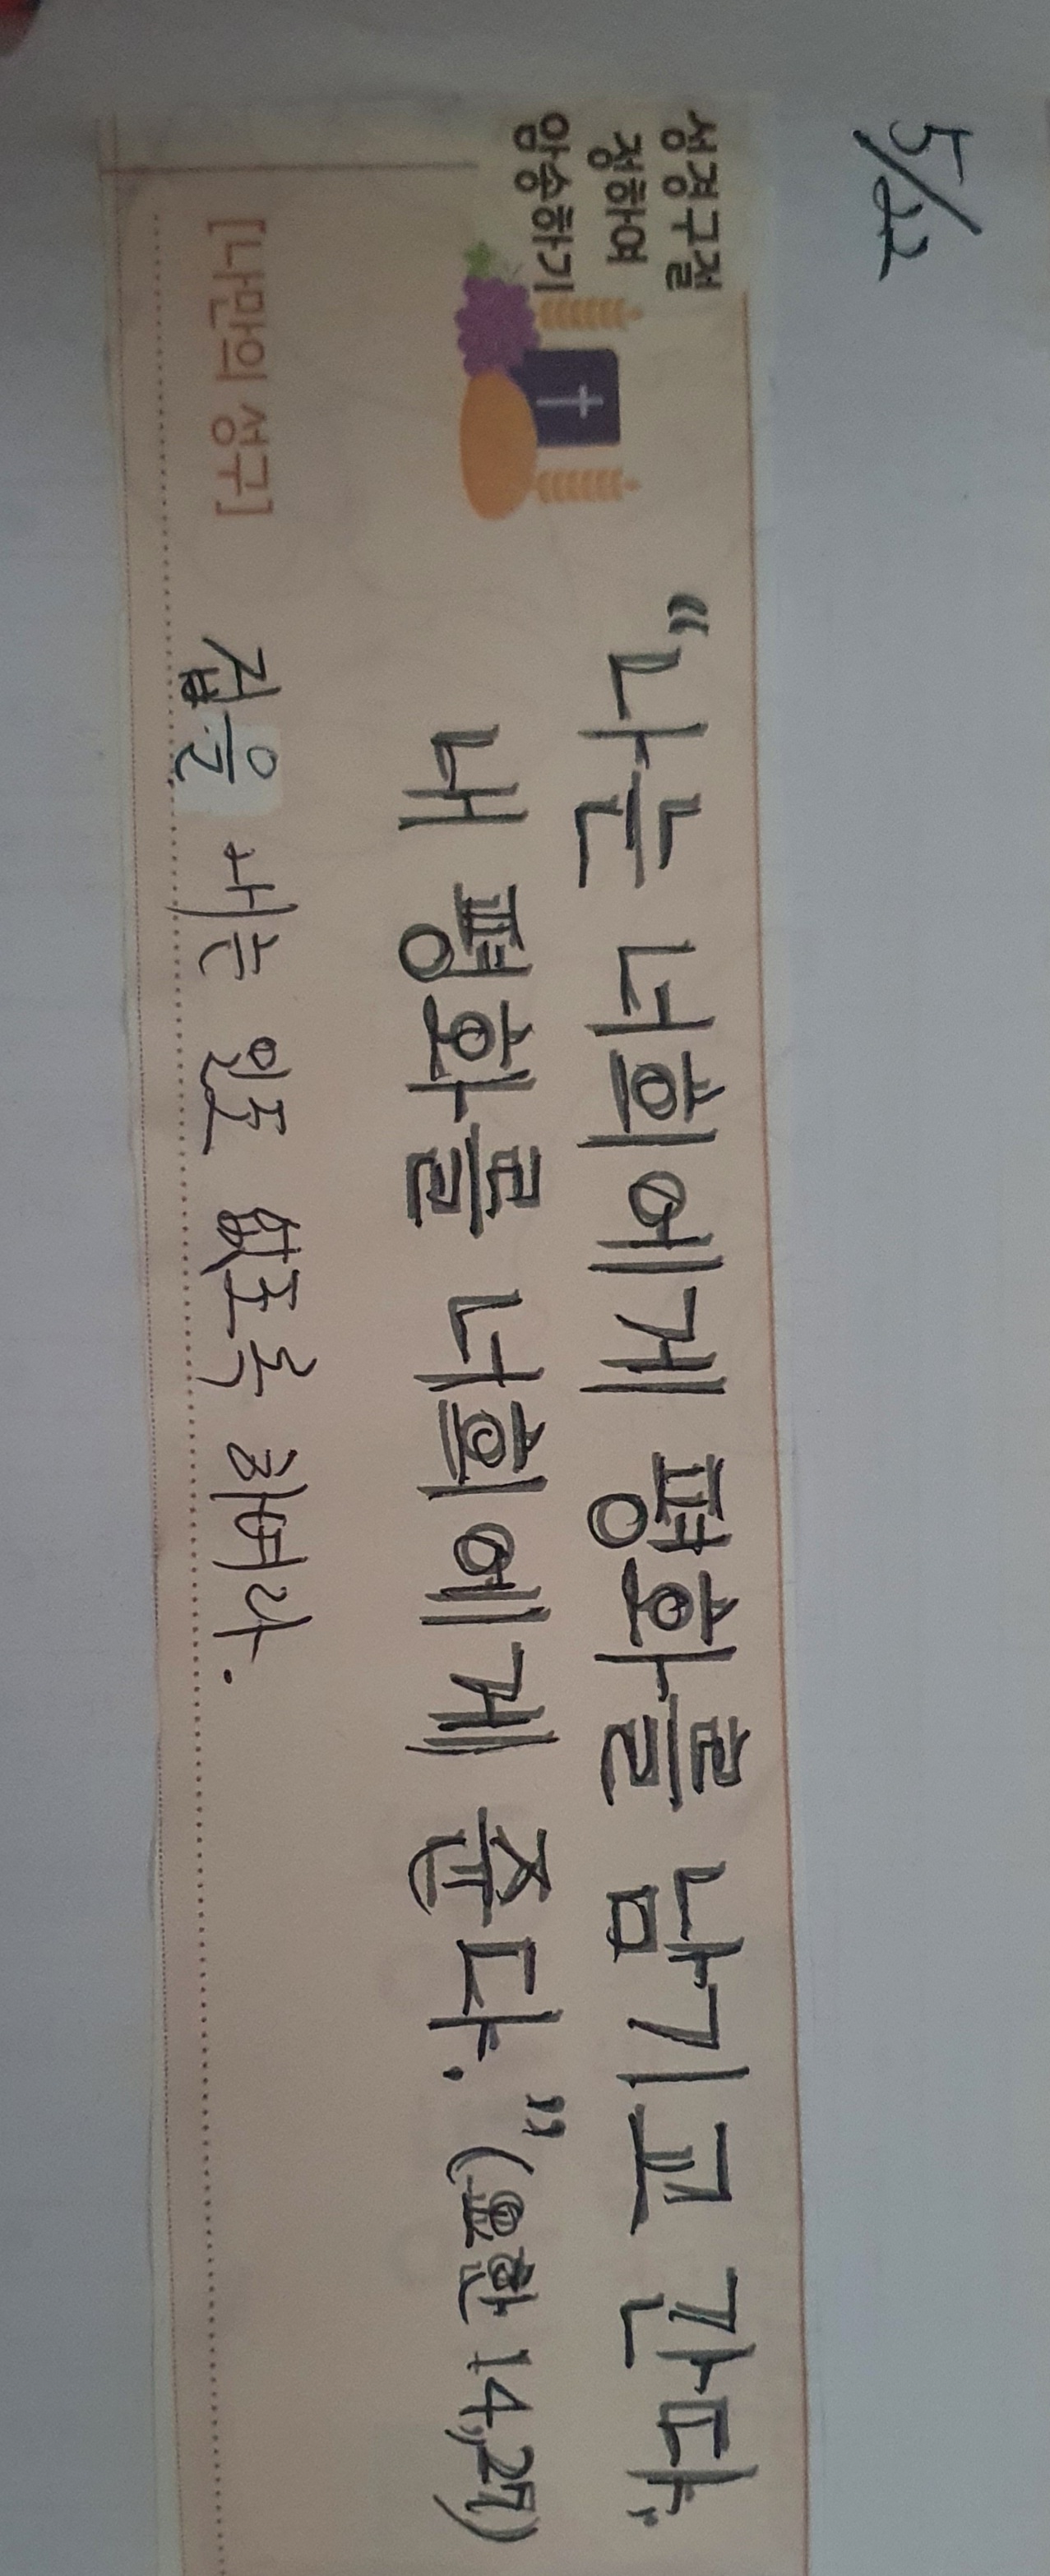 5/22
성경구절
정하여
암송하기
"나는 너희에게 평화를 남기고 간다.
내 평화를 너희에게 준다." (요한 14,27)
[나만의 성구]
겁을 내는 일도 없도록 하여라.